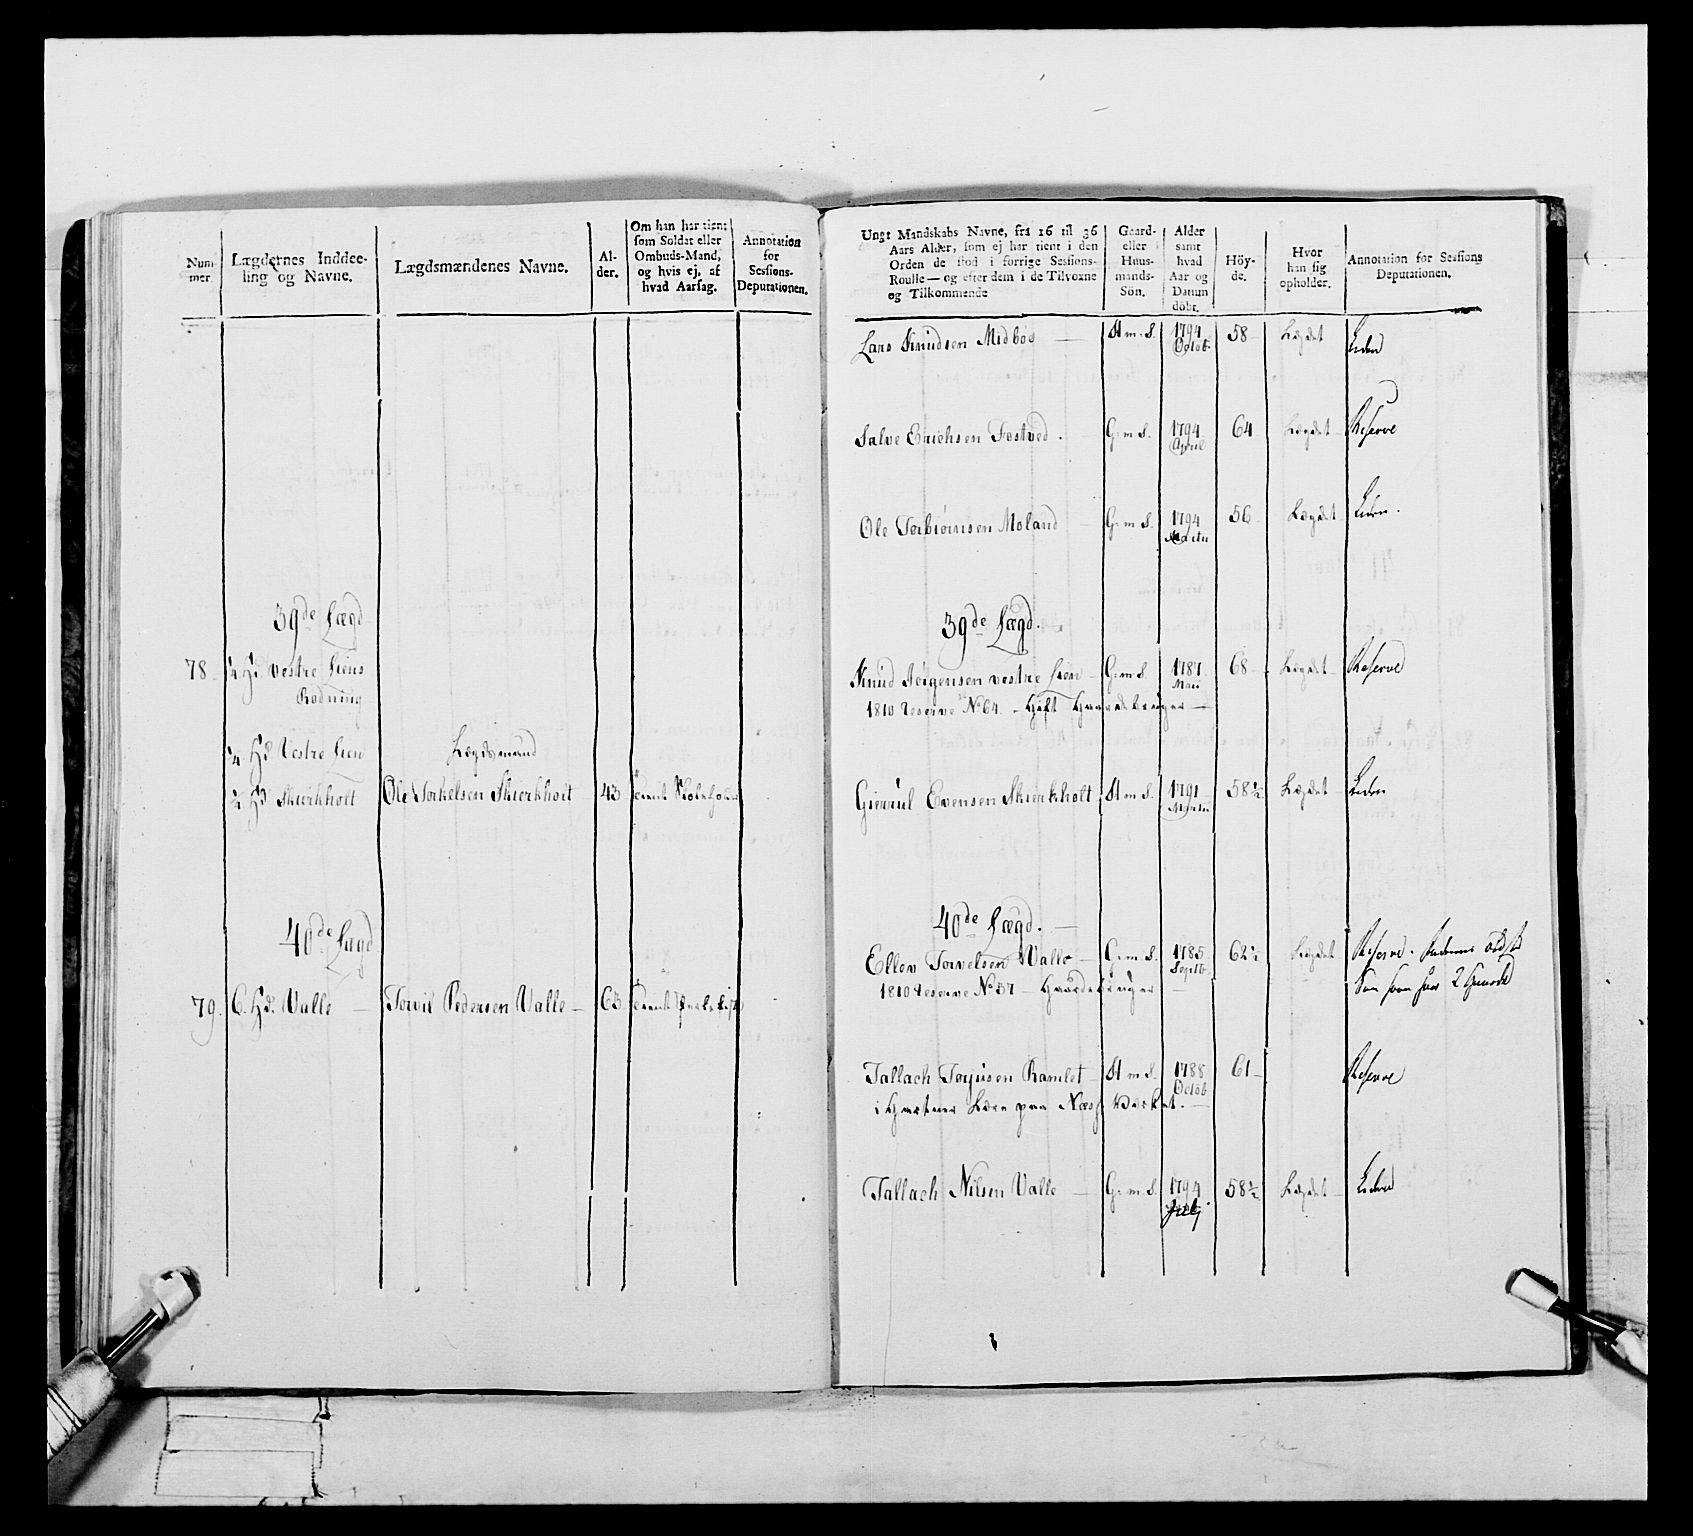 Num-
mer.
Lægdernes Inddee-
ling og Navne.
Lægdsmændenes Navne.
Al-
der.
Om han har tient
som Soldat eller
Ombuds-Mand,
og hvis ej, af
hvad Aarsag.
Annotation
for
Sessions-
Deputationen.
39de Lægd
78 ¼ Hd. Vestre Lien
Rødning
¼ Hd. Vestre Lien Lægdsmand
½ Hd. Skierkholt Ole Torkelsen Skierkholt 43
40de Lægd
79. 6. Hd. Valle — Torvil Pedersen Valle — 63
Ungt Mandskabs Navne, fra 16 til 36
Aars Alder, som ej har tient i den
Orden de stod i forrige Sessions-
Roulle — og efter dem i de Tilvoxne
og Tilkommende
Gaard-
eller
Huus-
mands-
Sön.
Alder
samt
hvad
Aar og
Datum
döbt.
Höy-
de.
Hvor
han sig
opholder.
Annotation for Sessions
Deputationen.
Lars Knudsen Midboe — H m. S. 1794 58 — Lægdet Liden
Octob.
Salve Erichsen Fostved. G. m S. 1794 64 Lægdet — Reserve
April
Ole Torbiørnsen Moland G. m S. 1794 56 Lægdet Liden.
Martii
39de Lægd.
Knud Jørgensen vestre Lien — G. m S. 1787. 68 — Lægdet — Reserve
Maii
1810 Reserve No 64. — Gift Gaardebruger —
Gierrul Evensen Skierkholt. H m S. 1791 58½ Lægdet — Liden
Martii
40de Lægd. —
Ellev Torvelsen Valle — G. m. S. 1785 62½ Lægdet Reserve.
Septb.
1810 Reserve No 37 — Gaardebruger — Søn som har 2 Gaarde
Tallach Terjusen Ramlet — H m S. 1788 61 — Reserve
Octob
i Gartner Lære paa Næs Værket. —
Tallach Nilsen Valle — G. m S. 1794 58½ Lægdet — Liden
Julj